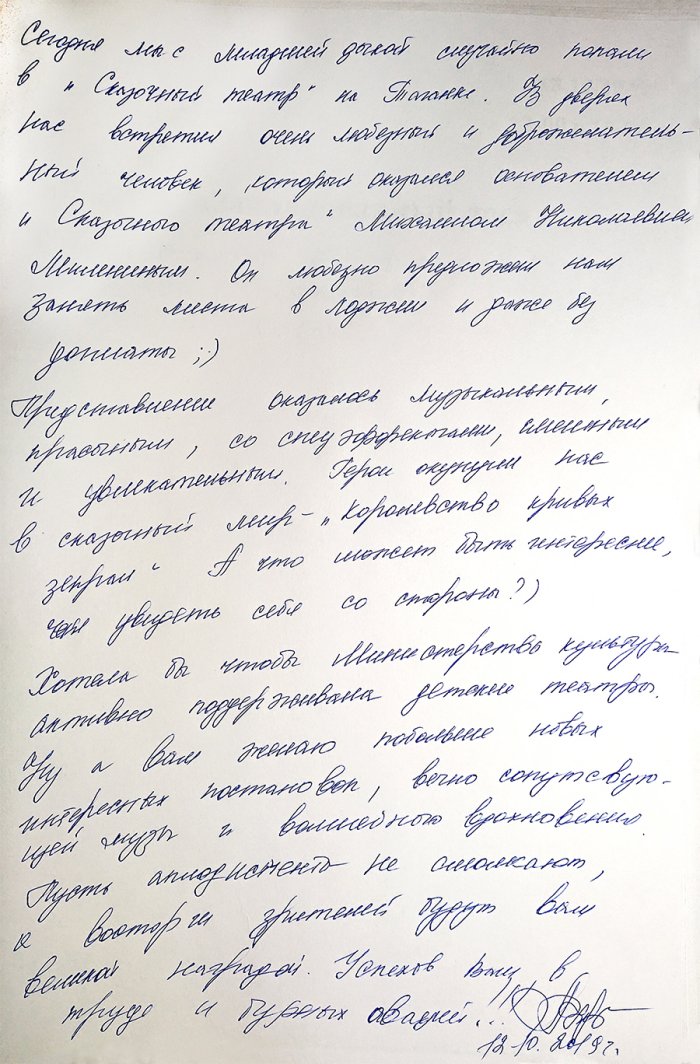 Сегодня мы с младшей дочкой случайно попали
в "Сказочный театр" на Таганке. В дверях
нас встретил очень любезный и доброжелатель-
ный человек, который оказался основателем
"Сказочного театра" Михаилом Николаевичем
Милениным. Он любезно предложил нам
занять места в лоджии и даже без
доплаты ;)
Представление оказалось музыкальным,
красочным, со спецэффектами, смешным
и увлекательным. Герои окунули нас
в сказочный мир - "Королевство кривых
зеркал" А что может быть интереснее,
чем увидеть себя со стороны?)
Хотела бы чтобы Министерство культуры
активно поддерживала детские театры.
Ну а Вам желаю побольше новых
интересных постановок, вечно сопутствую-
щей музы и волшебного вдохновения.
Пусть аплодисменты не смолкают,
а восторги зрителей будут вам
великой наградой. Успехов Вам в
труде и бурных оваций!..
12.10.2019г.